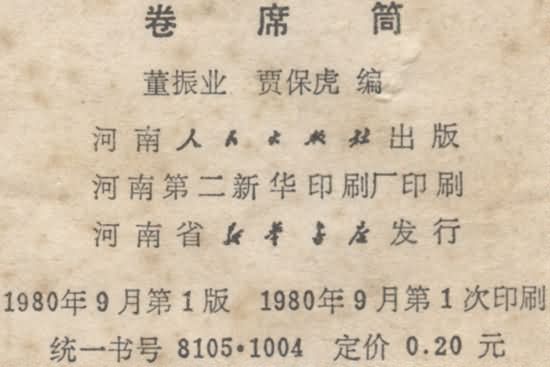 卷席筒
董振业 贾保虎 编
河南人民出版社出版
河南第二新华印刷厂印刷
河南省新华书店发行
1980年9月第1版 1980年9月第1次印刷
统一书号 8105·1004 定价 0.20 元